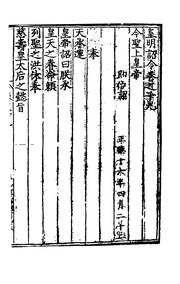 皇明詔令卷之十九
今上皇帝
即位詔 正德十六年四月二十二日
奉
天承運
皇帝詔曰朕承
皇天之眷命賴
列聖之洪休奉
慈壽皇太后之懿旨